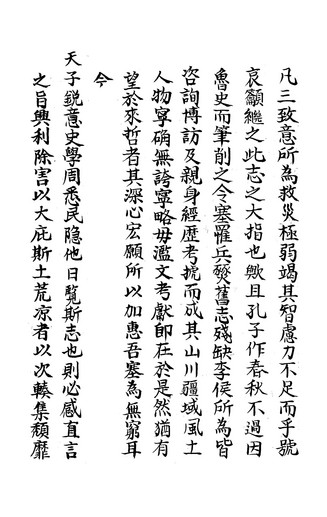 凡三致意所為救災極弱竭其智慮力不足而乎號
哀籲繼之此志之大指也歟且孔子作春秋不過因
魯史而筆削之今塞罹兵燹舊志殘缺李侯所為皆
咨詢博訪及親身經歷考㨿而成其山川疆域風土
人物寧确無誇寧略毋濫文考獻卽在於是然猶有
望於來哲者其深心宏願所以加惠吾塞為無窮耳
今
天子銳意史學周悉民隐他日覧斯志也則必感直言
之旨興利除害以大庇斯土荒凉者以次輳集頹靡